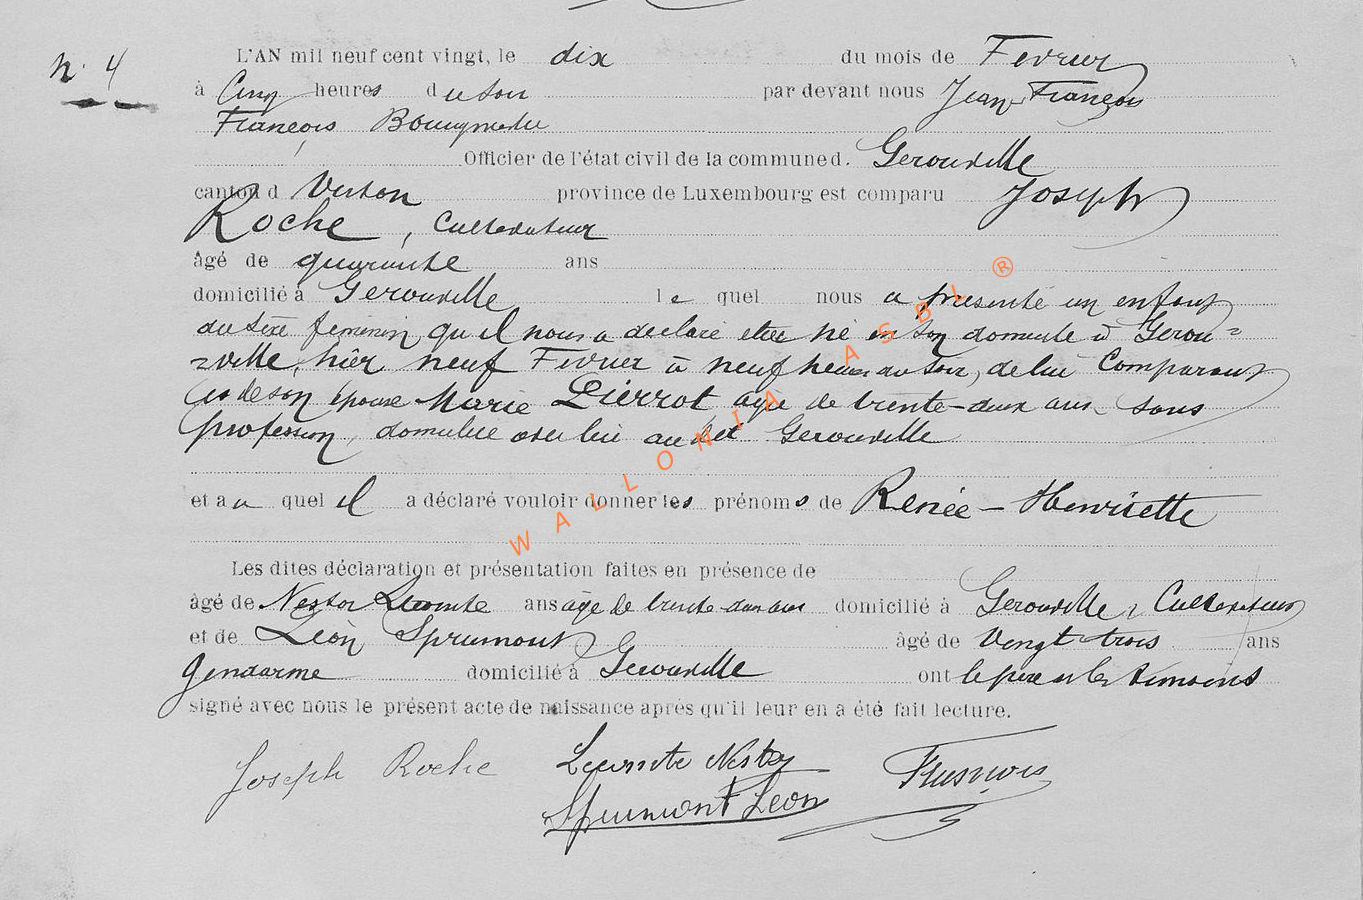 N. 4
L'AN mil neuf cent vingt, le dix du mois de Fevrier
à Cinq heures du soir par devant nous Jean-François
François
Officier de l'état civil de la commune d. Gerouville
canton d Virton province de Luxembourg est comparu Joseph
Roche, Cultivateur
âgé de quarante ans
domicilié à Gerouville le quel nous a présenté un enfant
du sexe féminin qu'il nous a déclaré être né en son domicile à Gerou=
=ville, hier neuf Fevrier à neuf heures du soir, de lui Comparant
et de son épouse Marie Pierrot agée de trente-deux ans sans
profession, domiciliée avec lui au dit Gerouville
et au quel il a déclaré vouloir donner les prénoms de Renée - Henriette
Les dites déclaration et présentation faites en présence de
âgé de Nestor Lecomte ans âgé de trente-deux ans domicilié à Gerouville, Cultivateur
et de Léon Sprumont âgé de vingt trois ans
Gendarme domicilié à Gerouville ont le père et les témoins
signé avec nous le présent acte de naissance après qu'il leur en a été fait lecture.
Joseph Roche Lecomte Nestor
Sprumont Léon
WALLONIA ASBL ®